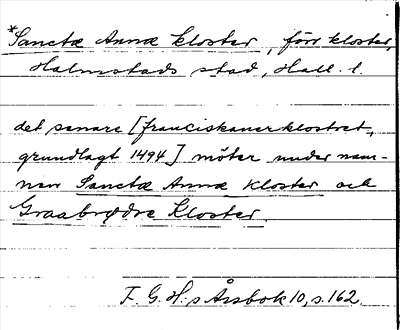 *Sanctæ Annæ kloster, förr kloster,
Halmstads stad, Hall. l.
det senare [franciskanerklostret,
grundlagt 1494] möter under nam-
nen Sanctæ Annæ Kloster och
Graabrødre Kloster.
F. G. H:s Årsbok 10, s. 162.